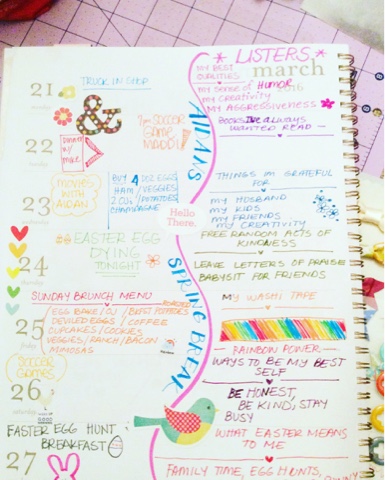 LISTERS
march
2016
MY BEST QUALITIES
my sense of Humor
my Creativity
MY AGGRESSIVENESS
BOOKS I've always
WANTED READ —
THINGS I'M GRATEFUL
FOR
MY HUSBAND
MY KIDS
MY FRIENDS
MY CREATIVITY
FREE RANDOM ACTS OF
KINDNESS
LEAVE LETTERS OF PRAISE
BABYSIT FOR FRIENDS
MY WASHI TAPE
RAINBOW POWER
WAYS TO BE MY BEST
SELF
BE HONEST,
BE KIND, STAY
BUSY
WHAT EASTER MEANS
TO ME
FAMILY TIME, EGG HUNTS,
21
monday
TRUCK IN SHOP
&
22
7pm SOCCER
GAME
MADDIE
DINNER
w/
MIKE
23
MOVIES
WITH
AIDAN
BUY 4 DOZ EGGS
HAM / VEGGIES
2 OJ'S / POTATOES
CHAMPAGNE
Hello
There.
AIDAN'S
SPRING BREAK
24
thursday
## EASTER EGG
DYING
TONIGHT
25
friday
SUNDAY BRUNCH MENU
EGG BAKE / OJ / ROASTED POTATOES
DEVILED EGGS / COFFEE
CUPCAKES / COOKIES
VEGGIES / RANCH / BACON
MIMOSAS
26
saturday
SOCCER
GAMES
27
EASTER EGG HUNT
BREAKFAST